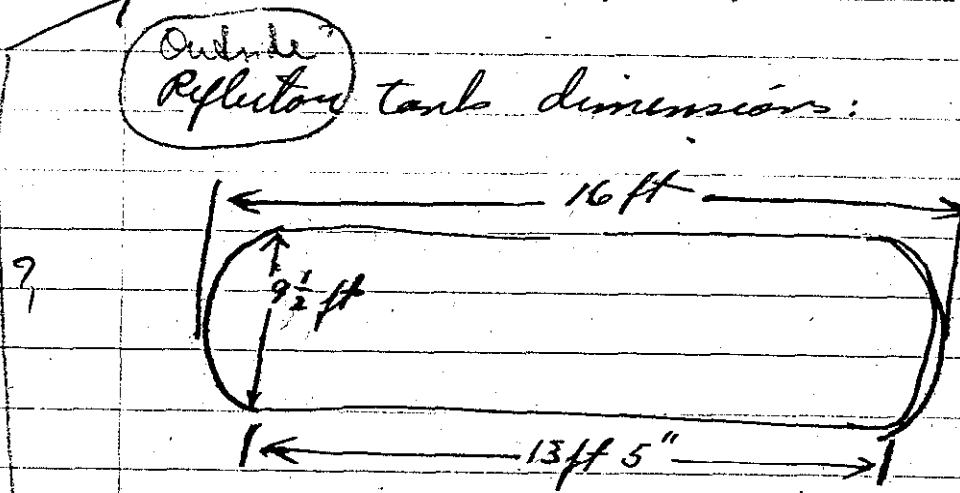 Outside
Reflector tank dimensions:
16 ft
?
9 1/2 ft
13 ft 5"